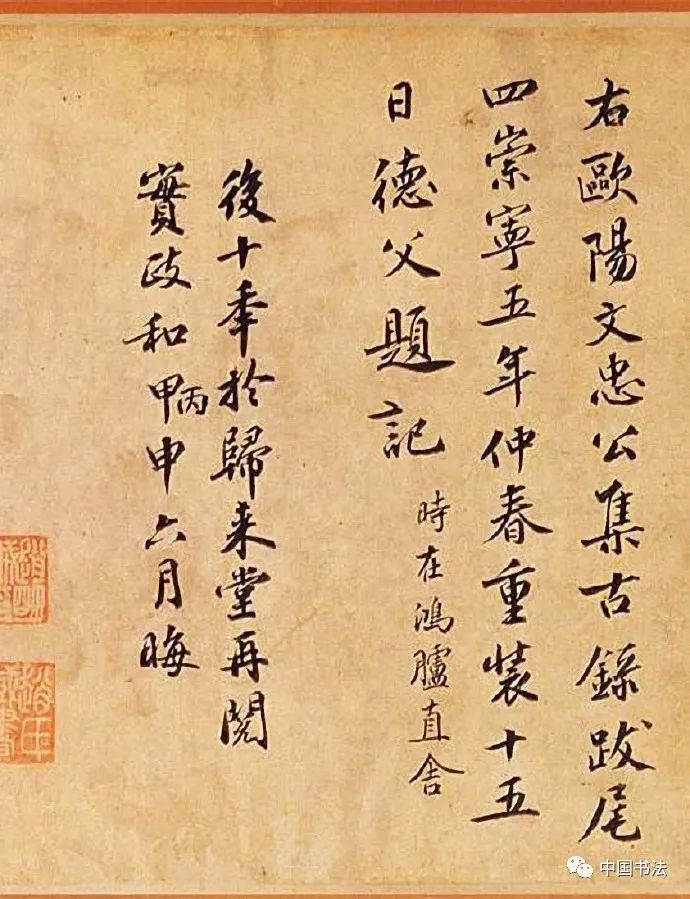 右歐陽文忠公集古錄跋尾
四崇寧五年仲春重裝十五
日德父題記
時在鴻臚直舍
後十年於歸來堂再閱
實政和甲丙申六月晦
中国书法